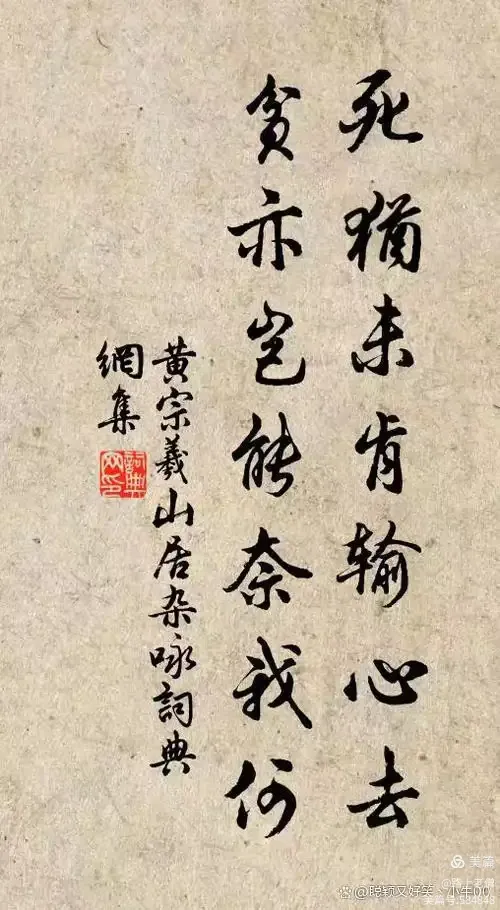 死猶未肯输心去
贫亦岂能奈我何
黄宗羲山居杂咏詞典
網集
詞典
网印
美篇
@聪颖又好笑丶小牛00
美篇号:534843